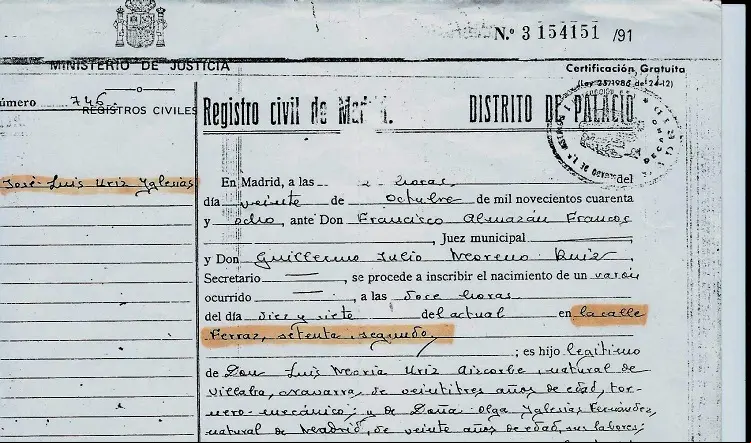 N.º 3 154151 /91
MINISTERIO DE JUSTICIA
REGISTROS CIVILES
Certificación Gratuita
(Ley 25/1986 de 24-12)
Número 746.
Registro civil de Madrid.
DISTRITO DE PALACIO
José Luis Uriz Yglesias
En Madrid, a las horas, del
día veinte de Octubre de mil novecientos cuarenta
y ocho, ante Don Francisco Almazán Francos
, Juez municipal
y Don Guillermo Julio Moreno Ruiz
Secretario , se procede a inscribir el nacimiento de un varón
ocurrido , a las doce horas
del día diez y siete del actual en la calle
Ferraz, setenta, segundo,
; es hijo legítimo
de Don Luis María Uriz Aizcorbe, natural de
Villaba, Navarra, de veintitres años de edad, tor-
nero-mecánico; y de Doña Olga Yglesias Fernández,
natural de Madrid, de veinte años de edad, sus labores;